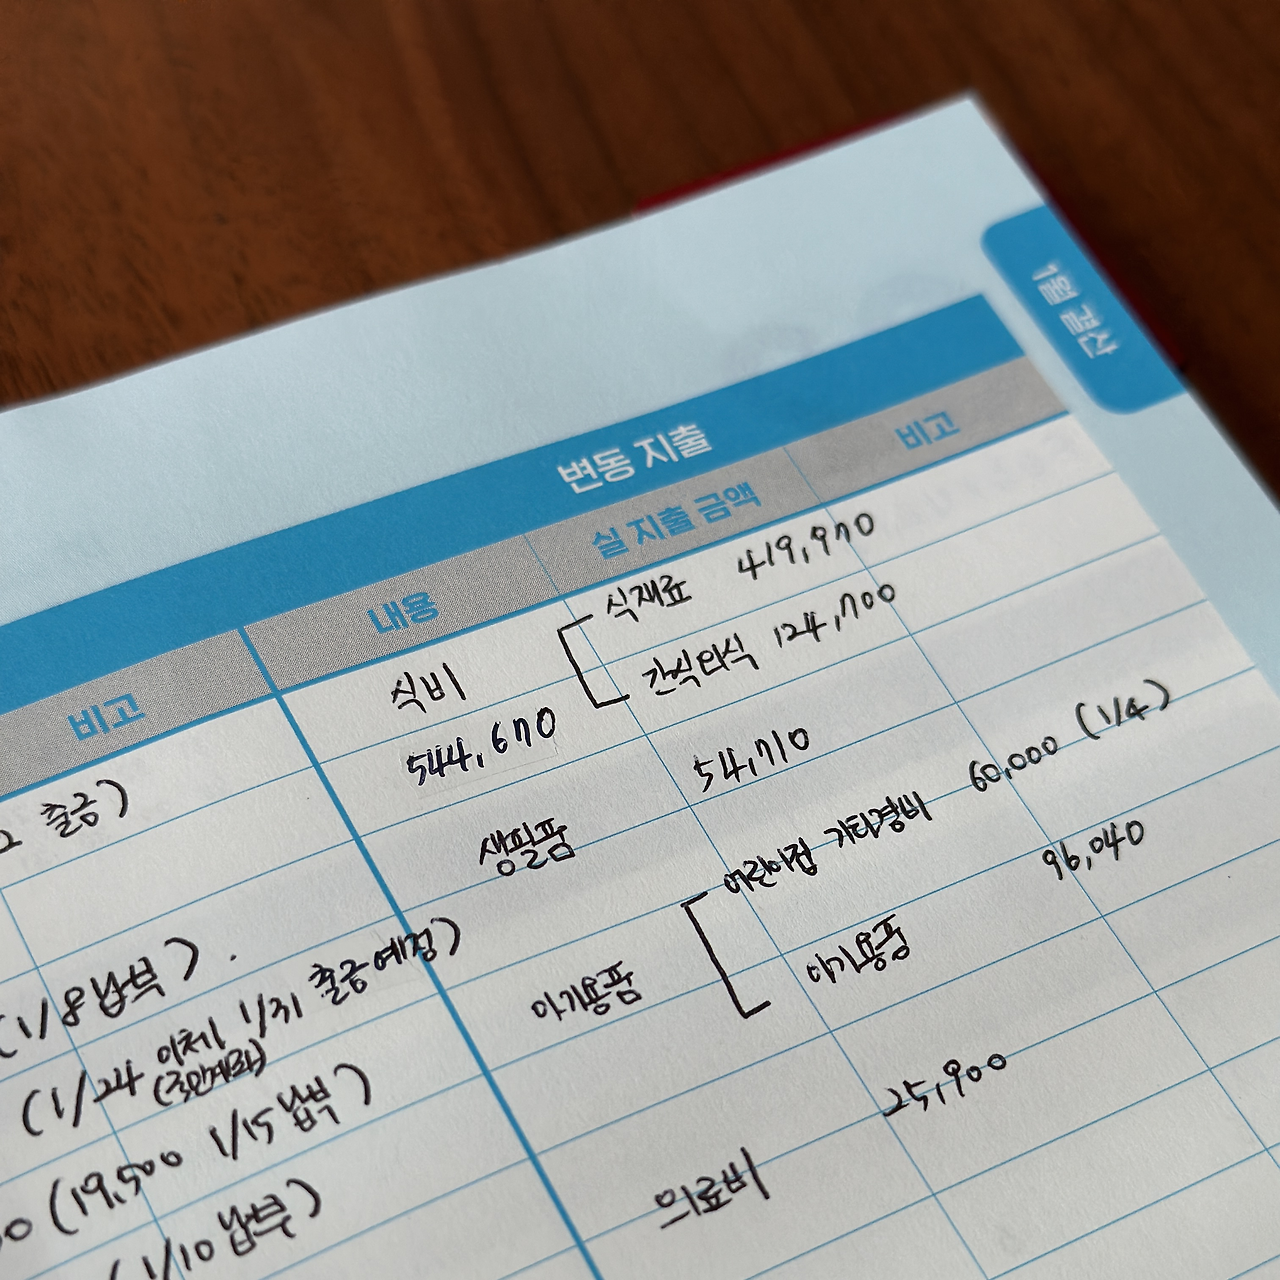 1월 결산
변동 지출
비고 내용 실 지출 금액 비고
식비 식재료 419,970
544,670 간식외식 124,700
생필품 54,710
아기용품 어린이집 기타경비 60,000 (1/4)
아기용품 96,040
의료비 25,900
2 출금)
(1/8 납부).
(1/24 이체, 1/31 출금예정)
(19,500 1/15 납부)
(1/10 납부)